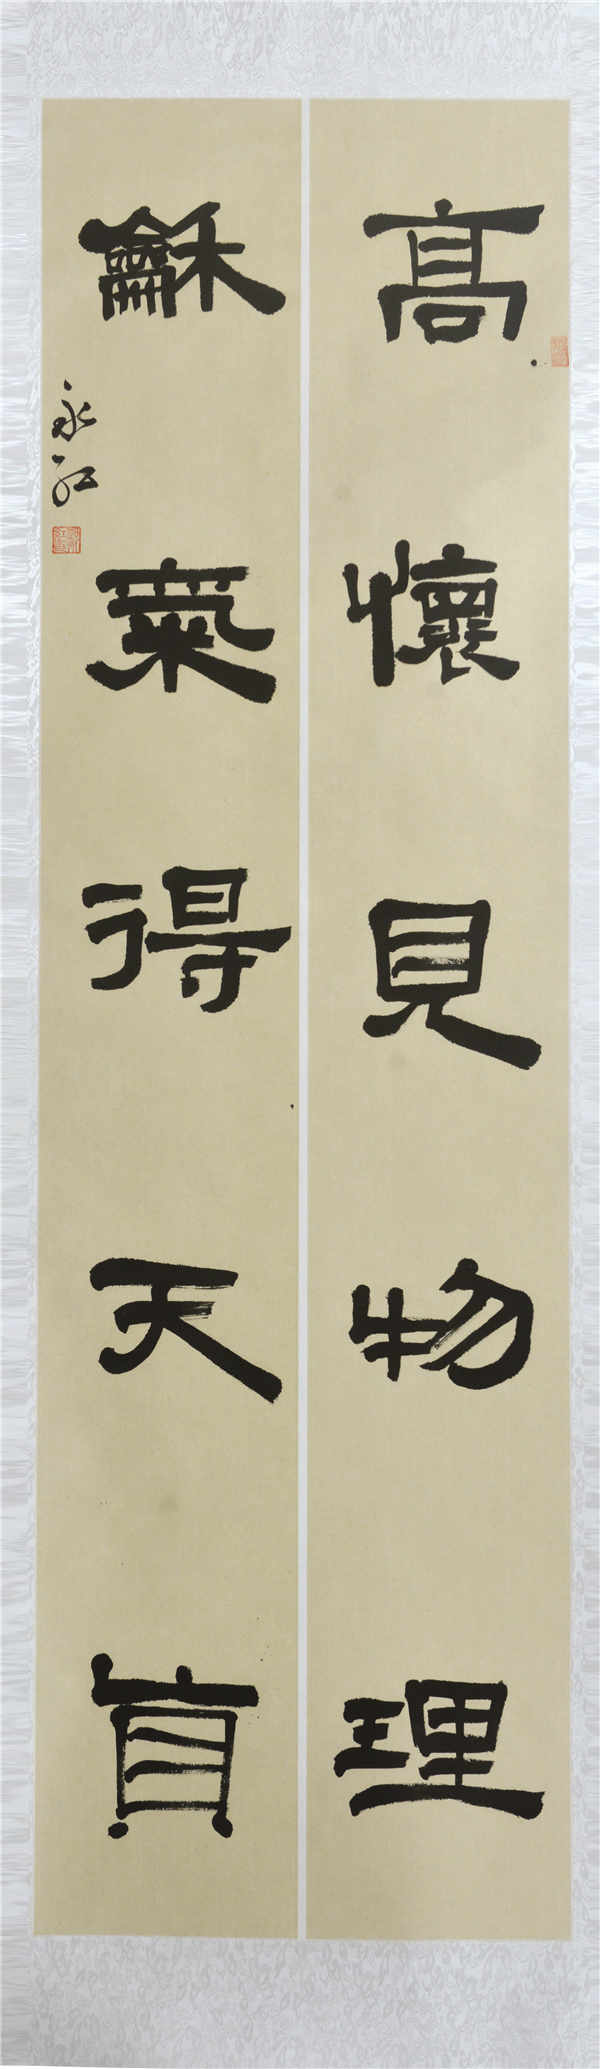 高懷見物理
龢氣得天真
永江